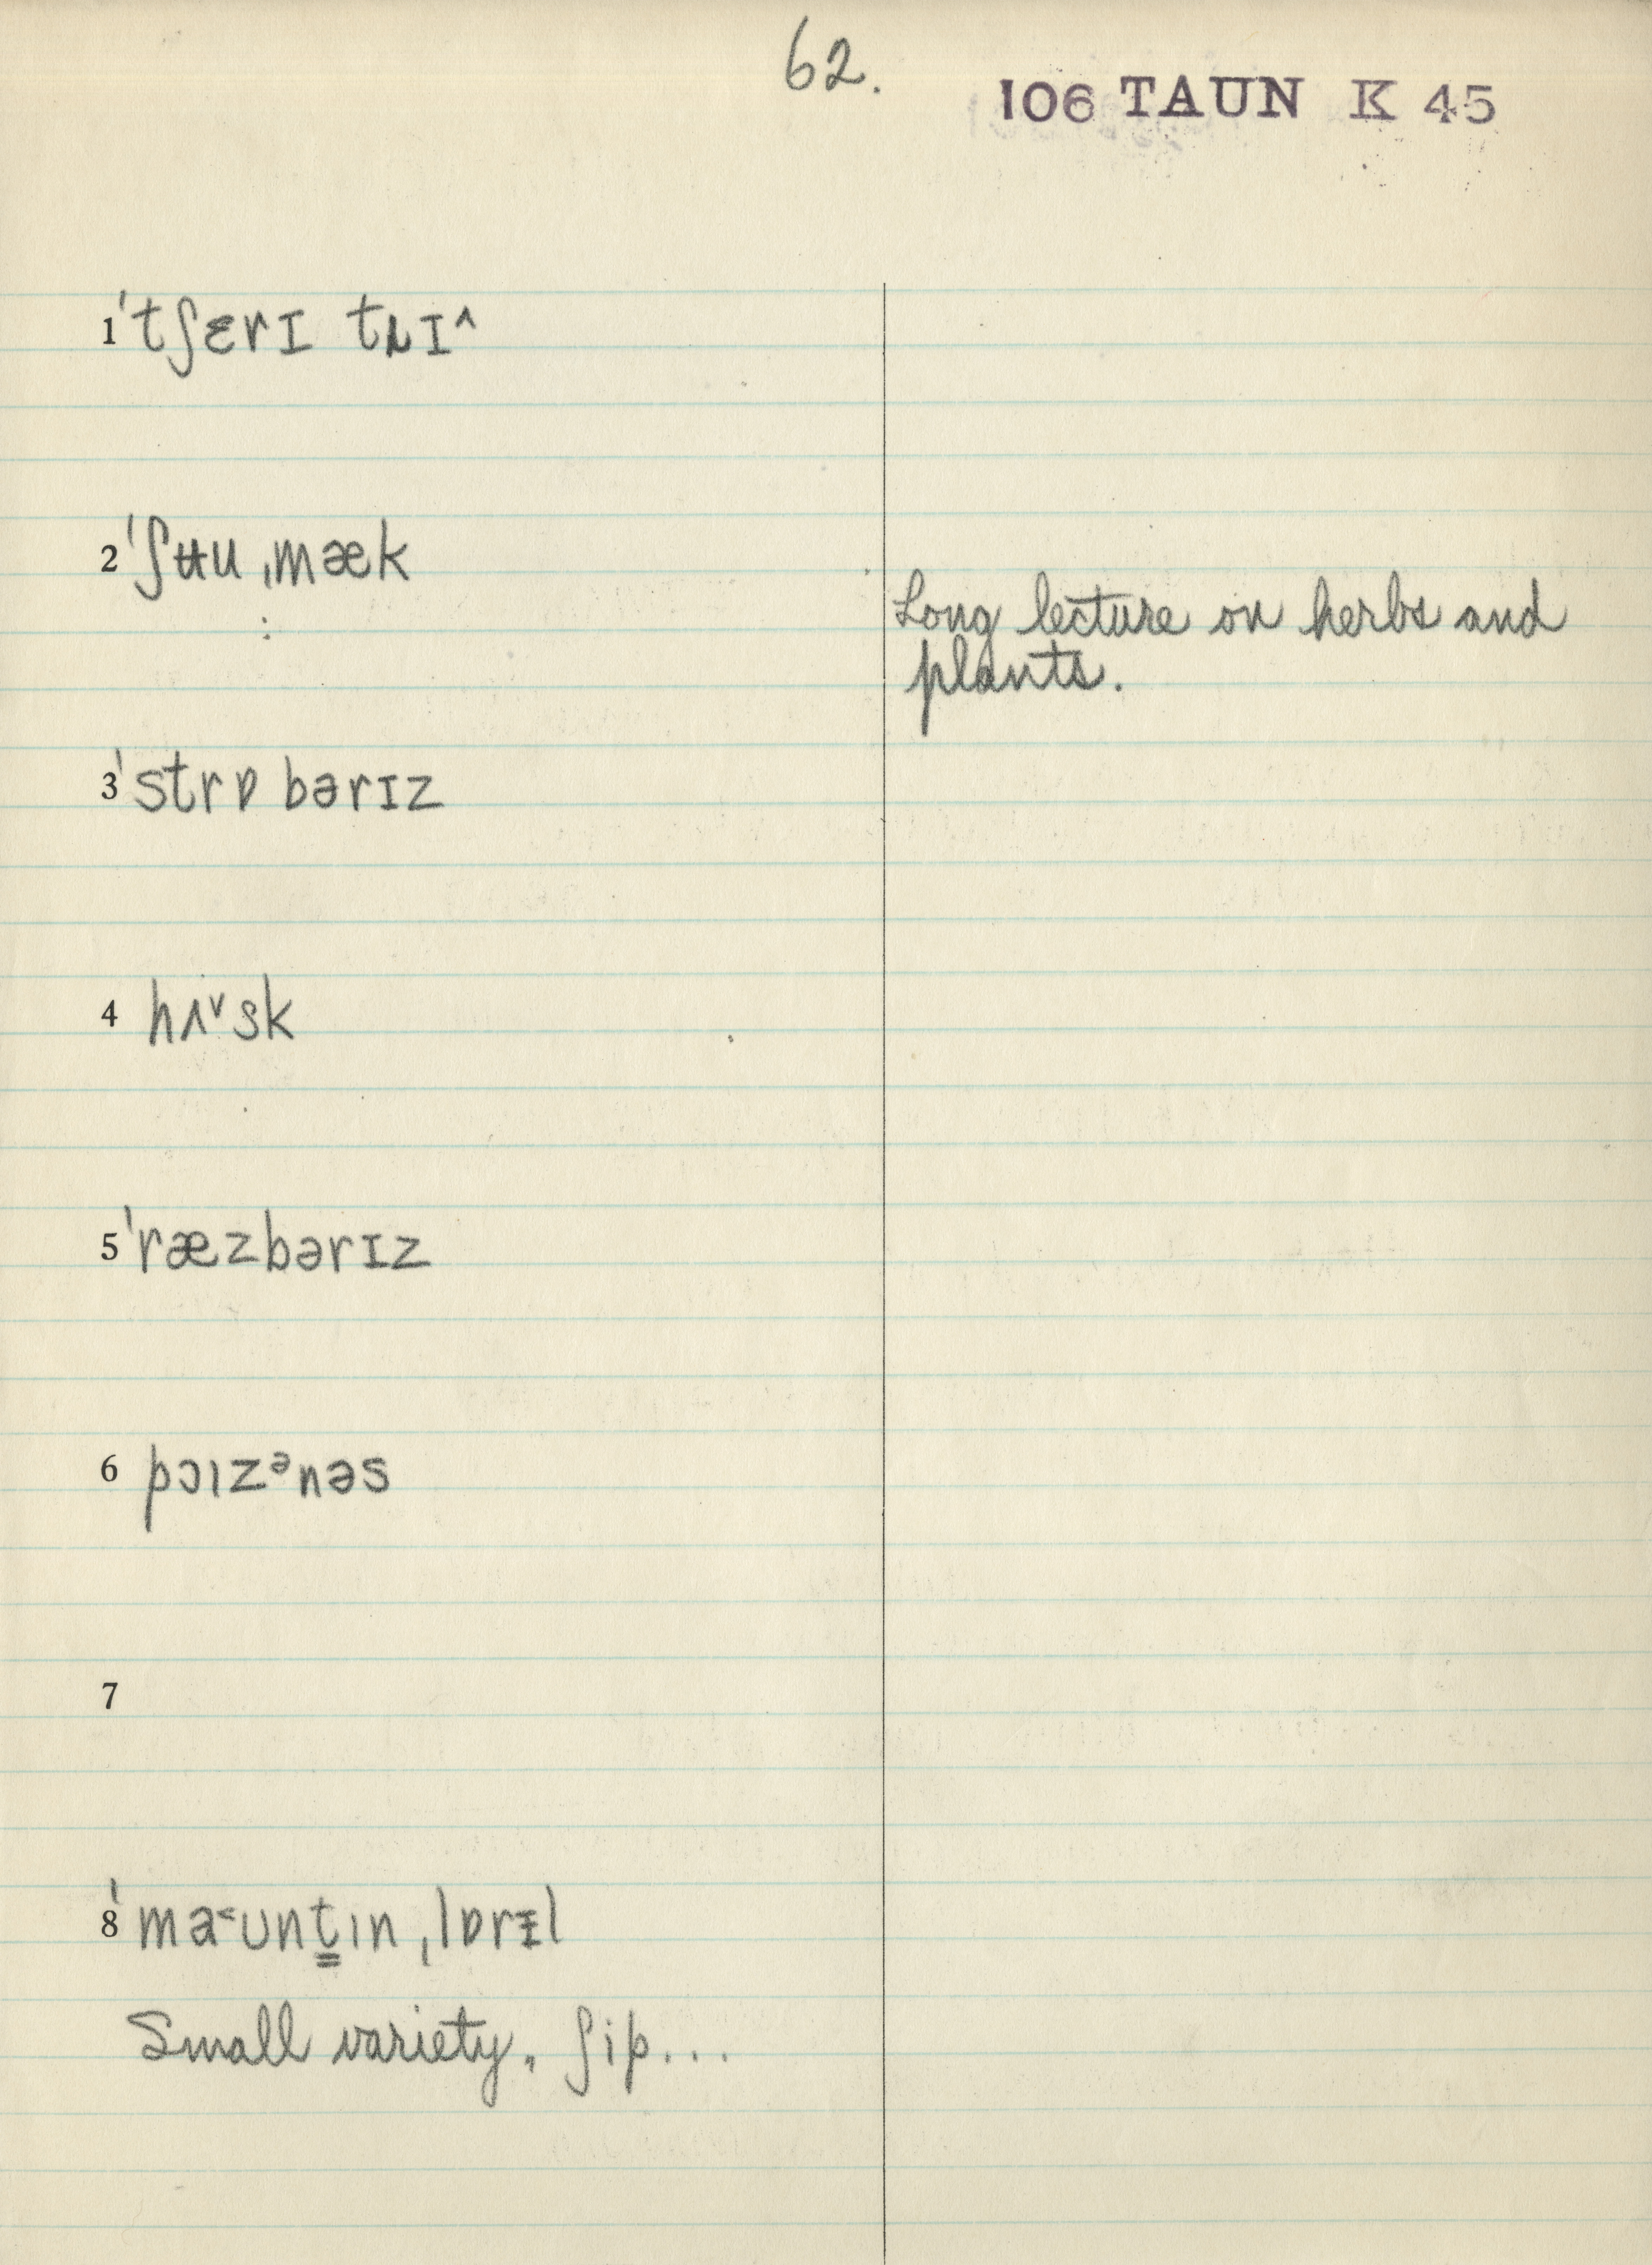 62.
106 TAUN K 45
1 ˈtʃɛrɪ tɹɪ^
2 ˈʃʉu ˌmæk
:
Long lecture on herbs and
plants.
3 ˈstrɒ bərɪz
4 hʌᵛsk
5 ˈræzbərɪz
6 pɔızᵊnəs
7
8 ˈma˂ʊnt̳ın ˌlɒrɪ̵l
Small variety. ʃip...